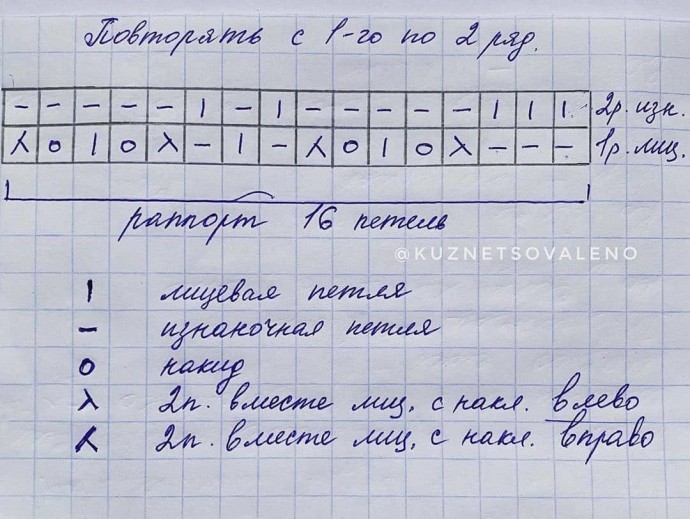 Повторять с 1-го по 2 ряд.
– – – – – | – | – – – – – | | | 2р. изн.
⋌ o | o λ – | – ⋌ o | o λ – – – 1р. лиц.
раппорт 16 петель
@KUZNETSOVALENO
| лицевая петля
– изнаночная петля
o накид
λ 2п. вместе лиц. с накл. влево
⋌ 2п. вместе лиц. с накл. вправо